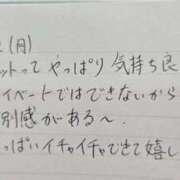 (月)
ットって やっぱり 気持ち良
イベートではできないから
別感がある〜
っぱいイチャイチャできて嬉し